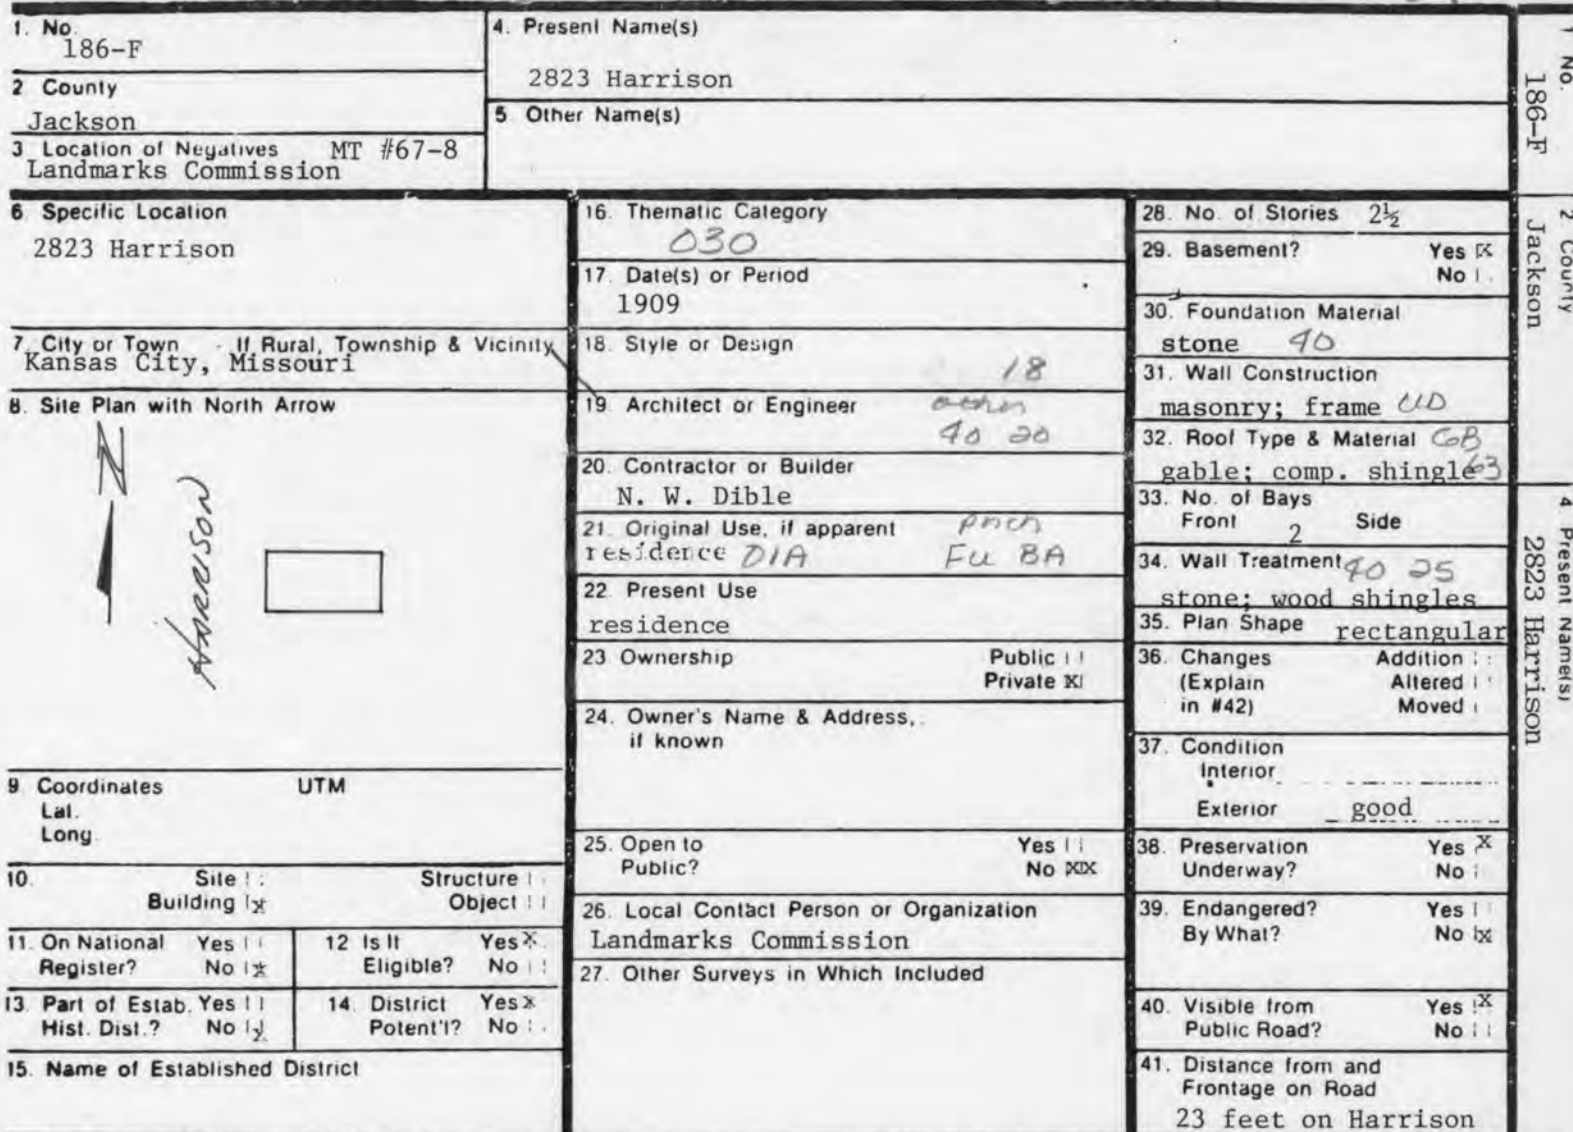 1. No.
186-F
2 County
Jackson
3 Location of Negatives MT #67-8
Landmarks Commission
4. Present Name(s)
2823 Harrison
5 Other Name(s)
6. Specific Location
2823 Harrison
7. City or Town If Rural, Township & Vicinity
Kansas City, Missouri
8. Site Plan with North Arrow
N
HARRISON
9. Coordinates UTM
Lat.
Long.
10. Site Structure
Building x Object
11. On National Yes
Register? No x
12 Is It Yes X
Eligible? No
13. Part of Estab. Yes
Hist. Dist.? No x
14. District Yes X
Potent'l? No
15. Name of Established District
16. Thematic Category
030
17. Date(s) or Period
1909
18. Style or Design
18
19. Architect or Engineer other
40 20
20. Contractor or Builder
N. W. Dible
21. Original Use, if apparent porch
residence 01A FU BA
22. Present Use
residence
23 Ownership Public
Private X
24. Owner's Name & Address,
if known
25. Open to Yes
Public? No XX
26. Local Contact Person or Organization
Landmarks Commission
27. Other Surveys in Which Included
28. No. of Stories 2½
29. Basement? Yes X
No
30. Foundation Material
stone 40
31. Wall Construction
masonry; frame UD
32. Roof Type & Material GB
gable; comp. shingle 63
33. No. of Bays
Front 2 Side
34. Wall Treatment 40 25
stone; wood shingles
35. Plan Shape rectangular
36. Changes Addition
(Explain Altered
in #42) Moved
37. Condition
Interior
Exterior good
38. Preservation Yes X
Underway? No
39. Endangered? Yes
By What? No X
40. Visible from Yes X
Public Road? No
41. Distance from and
Frontage on Road
23 feet on Harrison
1 No.
186-F
2 County
Jackson
4 Present Name(s)
2823 Harrison